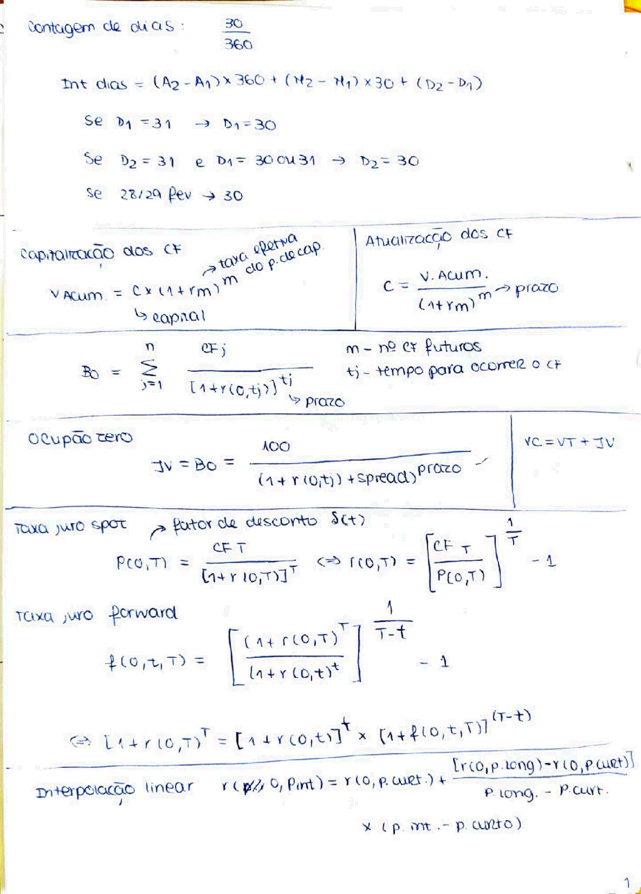 Contagem de dias: 30/360
Int dias = (A2-A1)×360 + (M2-M1)×30 + (D2-D1)
Se D1=31 → D1=30
Se D2=31 e D1=30 ou 31 → D2=30
Se 28/29 fev → 30
Capitalização dos CF
V Acum. = C×(1+rm)^m
→ taxa efetiva do p. de cap.
↳ capital
Atualização dos CF
C = V. Acum. / (1+rm)^m → prazo
B0 = Σ_{j=1}^{n} CFj / [1+r(0,tj)]^tj
↳ prazo
m - nº CF futuros
tj - tempo para ocorrer o CF
Ocupão zero
JV = B0 = 100 / (1+r(0,tj)+spread)^prazo
VC = VT + JV
Taxa juro spot → fator de desconto δ(t)
P(0,T) = CF T / [1+r(0,T)]^T <=> r(0,T) = [CF T / P(0,T)]^(1/T) - 1
Taxa juro forward
f(0,t,T) = [(1+r(0,T)^T / (1+r(0,t)^t]^(1/(T-t)) - 1
<=> [1+r(0,T)^T = [1+r(0,t)]^t × [1+f(0,t,T)]^(T-t)
Interpolação linear r(0, Pint) = r(0, p.curt.) + [r(0,p.long)-r(0,p.curt)] / P.long. - P.curt.
× (p. int. - p. curto)
1